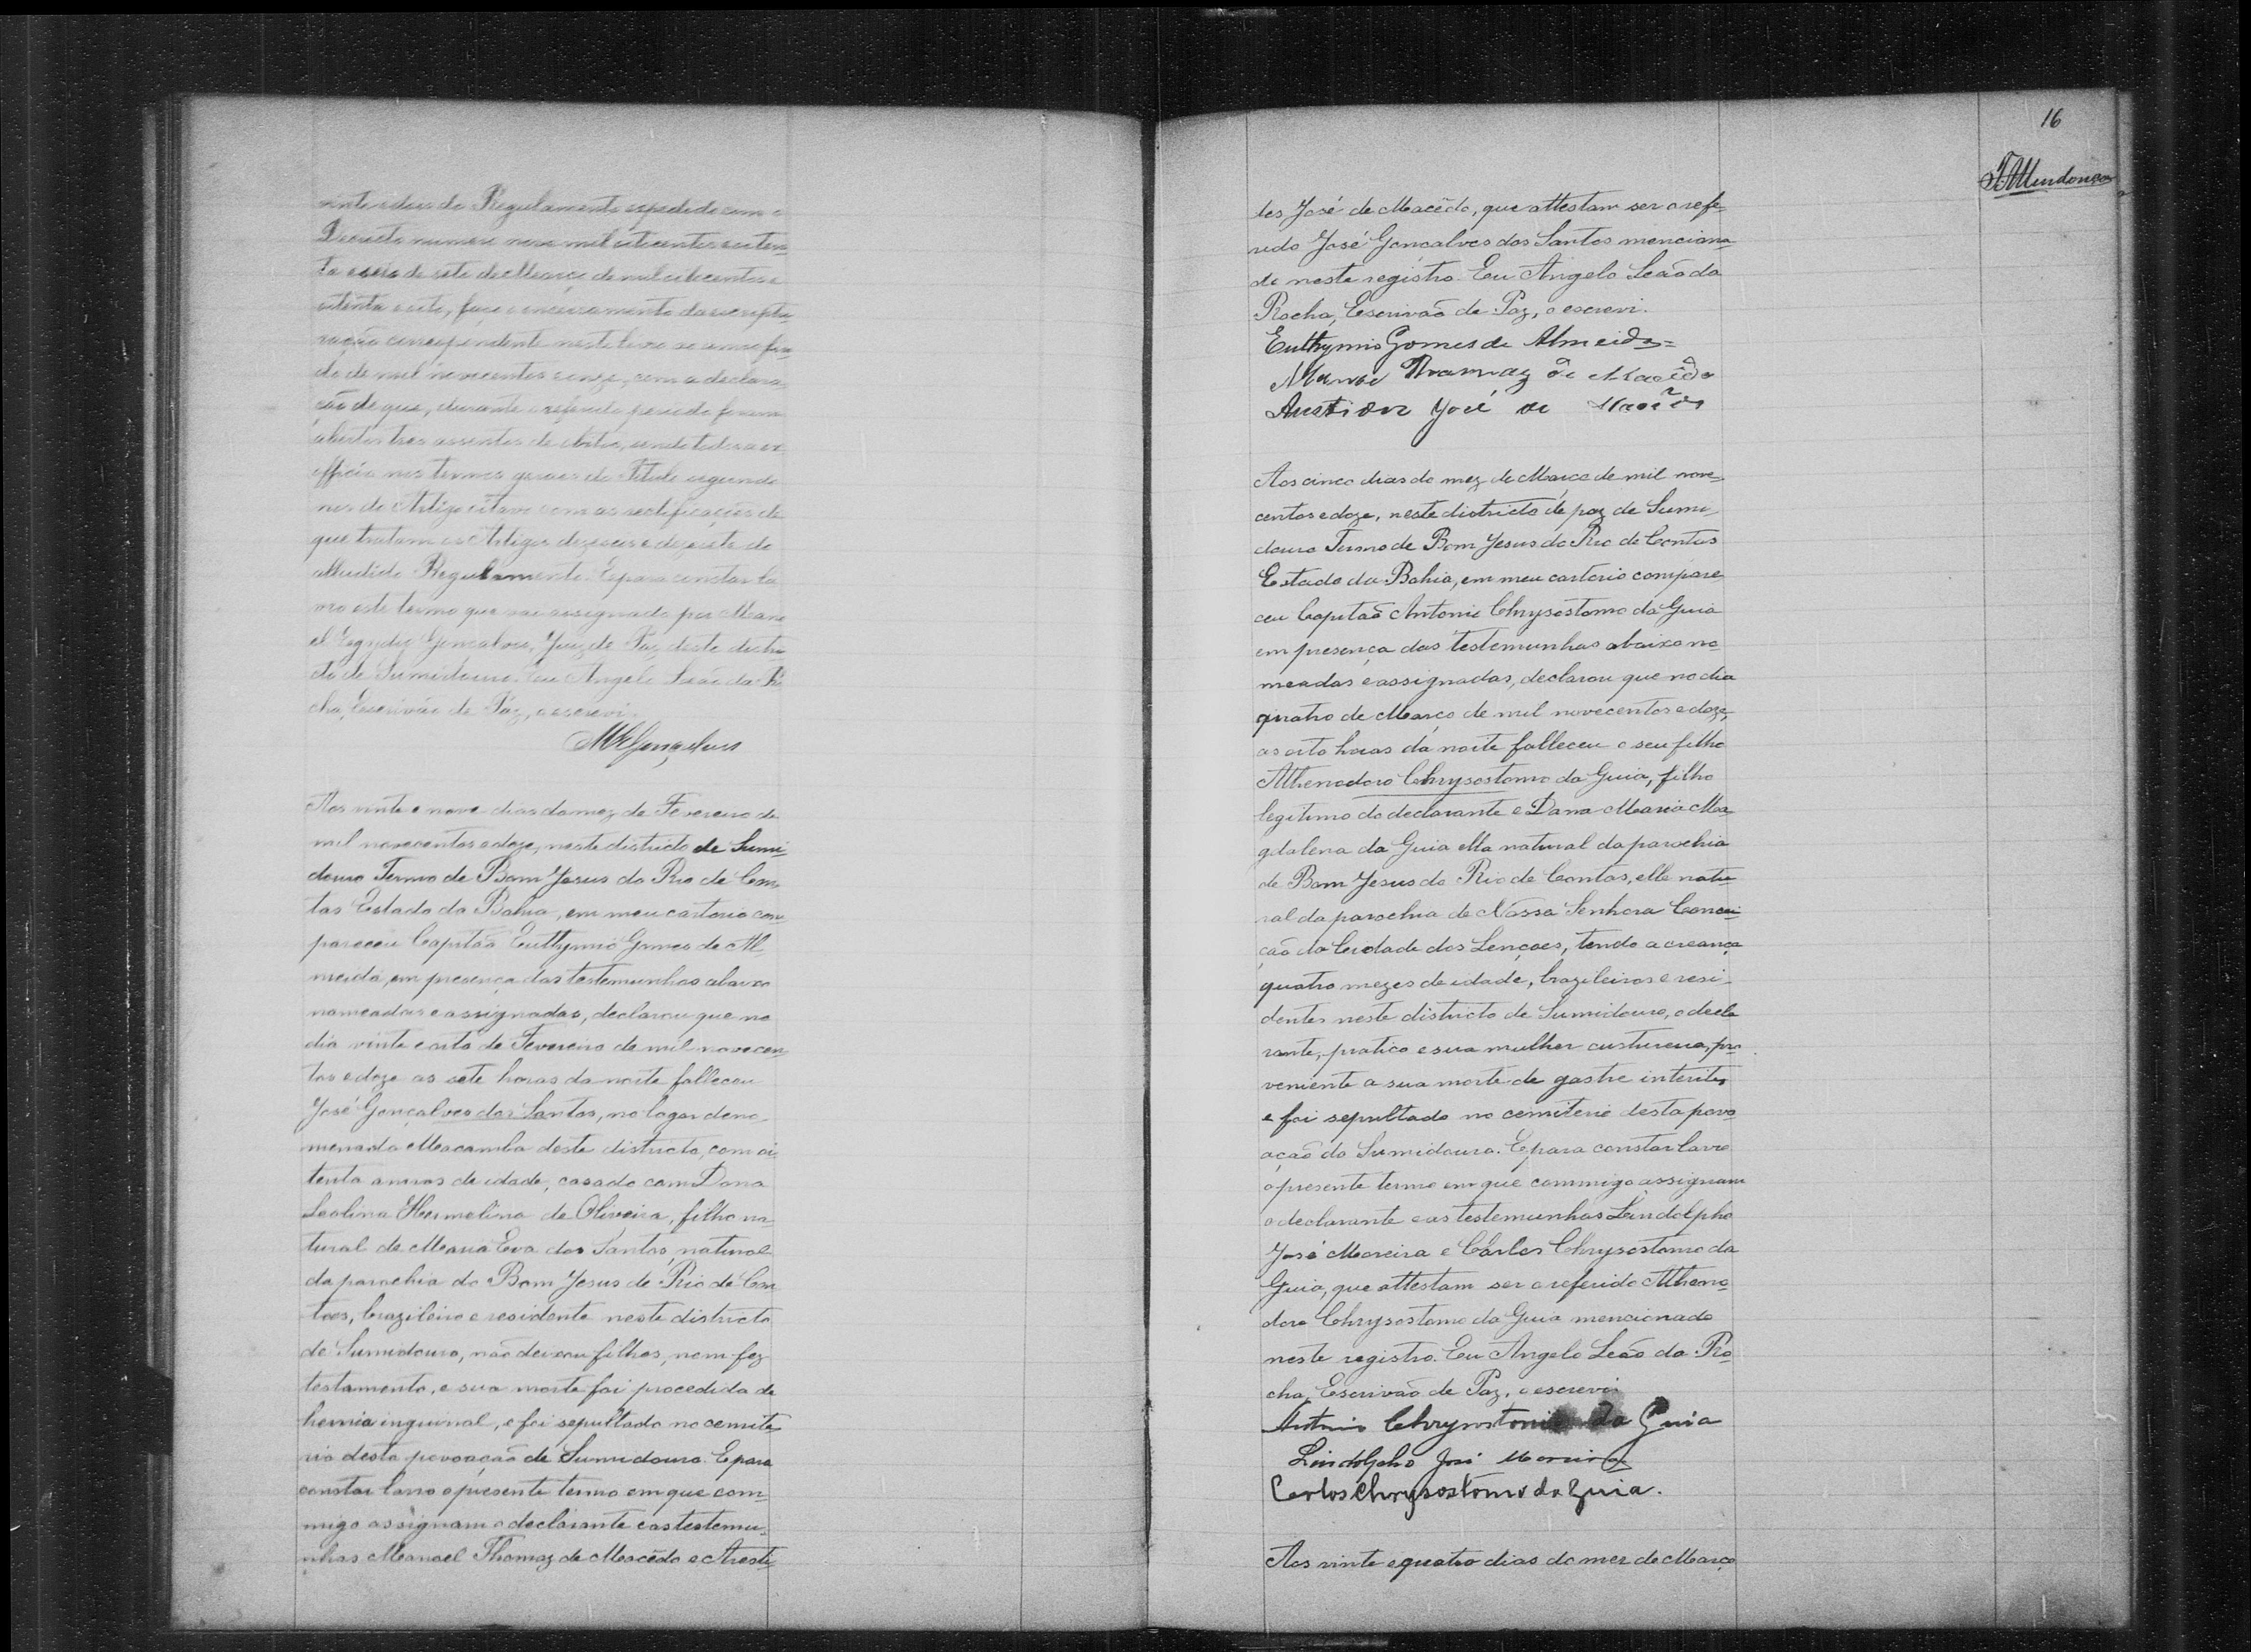 vinte e dois do Regulamento expedido com o
Decreto numero nove mil oitocentos e oiten-
ta e seis de sete de Março de mil oitocentos e
oitenta e oito, faço o enceiramento da escriptu-
ração correspondente neste livro ao anno fin-
do de mil novecentos e onze, com a declara-
ção de que, durante o referido periodo foram
abertos tres assentos de obitos, sendo todos a ex-
officio nos termos geraes do Titulo segundo
nos do Artigo oitavo com as rectificações de
que tratam os Artigos dezeseis e dezesete do
alludido Regulamento. E para constar la-
vro este termo que vai assignado por Mano-
el Egydio Gonçalves, Juiz de Paz deste distri-
cto de Sumidouro. Eu Angelo Leão da Ro-
cha, Escrivão de Paz, o escrevi.
MEGonçalves
Aos vinte e nove dias do mez de Fevereiro de
mil novecentos e doze, neste districto de Sumi-
douro Termo de Bom Jesus do Rio de Con-
tas Estado da Bahia, em meu cartorio com-
pareceu Capitão Euthymio Gomes de Al-
meida, em presença das testemunhas abaixo
nomeadas e assignadas, declarou que no
dia vinte e oito de Fevereiro de mil novecen-
tos e doze as sete horas da noite falleceu
José Gonçalves dos Santos, no logar deno-
menado Macamba deste districto, com oi-
tenta annos de idade, casado com Dona
Leolina Hermelina de Oliveira, filho na-
tural de Maria Eva dos Santos, natural
da parochia do Bom Jesus do Rio de Con-
tas, brazileiro e residente neste districto
de Sumidouro, não deixou filhos, nem fez
testamento, e sua morte foi procedida de
hernia inguinal, e foi sepultado no cemite-
rio desta povoação de Sumidouro. E para
constar lavro o presente termo em que com-
migo assignam o declarante e as testemu-
nhas Manoel Thomaz de Macêdo e Aristi-
16
Mendonça
des José de Macêdo, que attestam ser o refe-
rido José Gonçalves dos Santos menciona-
do neste registro. Eu Angelo Leão da
Rocha, Escrivão de Paz, o escrevi.
Euthymio Gomes de Almeida=
Manoel Thomaz de Macêdo
José de Macêdo
Aos cinco dias do mez de Março de mil nove-
centos e doze, neste districto de paz de Sumi-
douro Termo de Bom Jesus do Rio de Contas
Estado da Bahia, em meu cartorio compare-
ceu Capitão Antonio Chrysostomo da Guia
em presença das testemunhas abaixo no-
meadas e assignadas, declarou que no dia
quatro de Março de mil novecentos e doze,
as oito horas da noite falleceu o seu filho
Athenodoro Chrysostomo da Guia, filho
legitimo do declarante e Dona Maria Ma-
gdalena da Guia ella natural da parochia
de Bom Jesus do Rio de Contas, elle natu-
ral da parochia de Nossa Senhora Concei-
ção da Cidade dos Lençoes, tendo a creança
quatro mezes de idade, brazileiros e resi-
dentes neste districto de Sumidouro, o decla-
rante, pratico e sua mulher custureira, pro-
veniente a sua morte de gastro interites
e foi sepultado no cemiterio desta povo-
ação do Sumidouro. E para constar lavro
o presente termo em que commigo assignam
o declarante e as testemunhas Lindolpho
José Moreira e Carlos Chrysostomo da
Guia, que attestam ser o referido Atheno-
doro Chrysostomo da Guia mencionado
neste registro. Eu Angelo Leão da Ro-
cha, Escrivão de Paz, o escrevi.
Antonio Chrysostomo da Guia
Lindolpho José Moreira
Carlos Chrysostomo da Guia.
Aos vinte e quatro dias do mez de Março